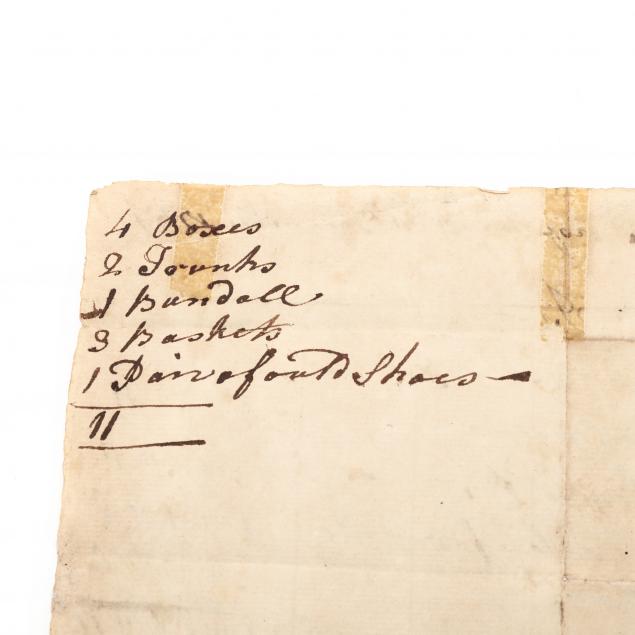 4 Boxes
2 Trunks
1 Bundell
3 Baskets
1 Pair of ould Shoes —
11